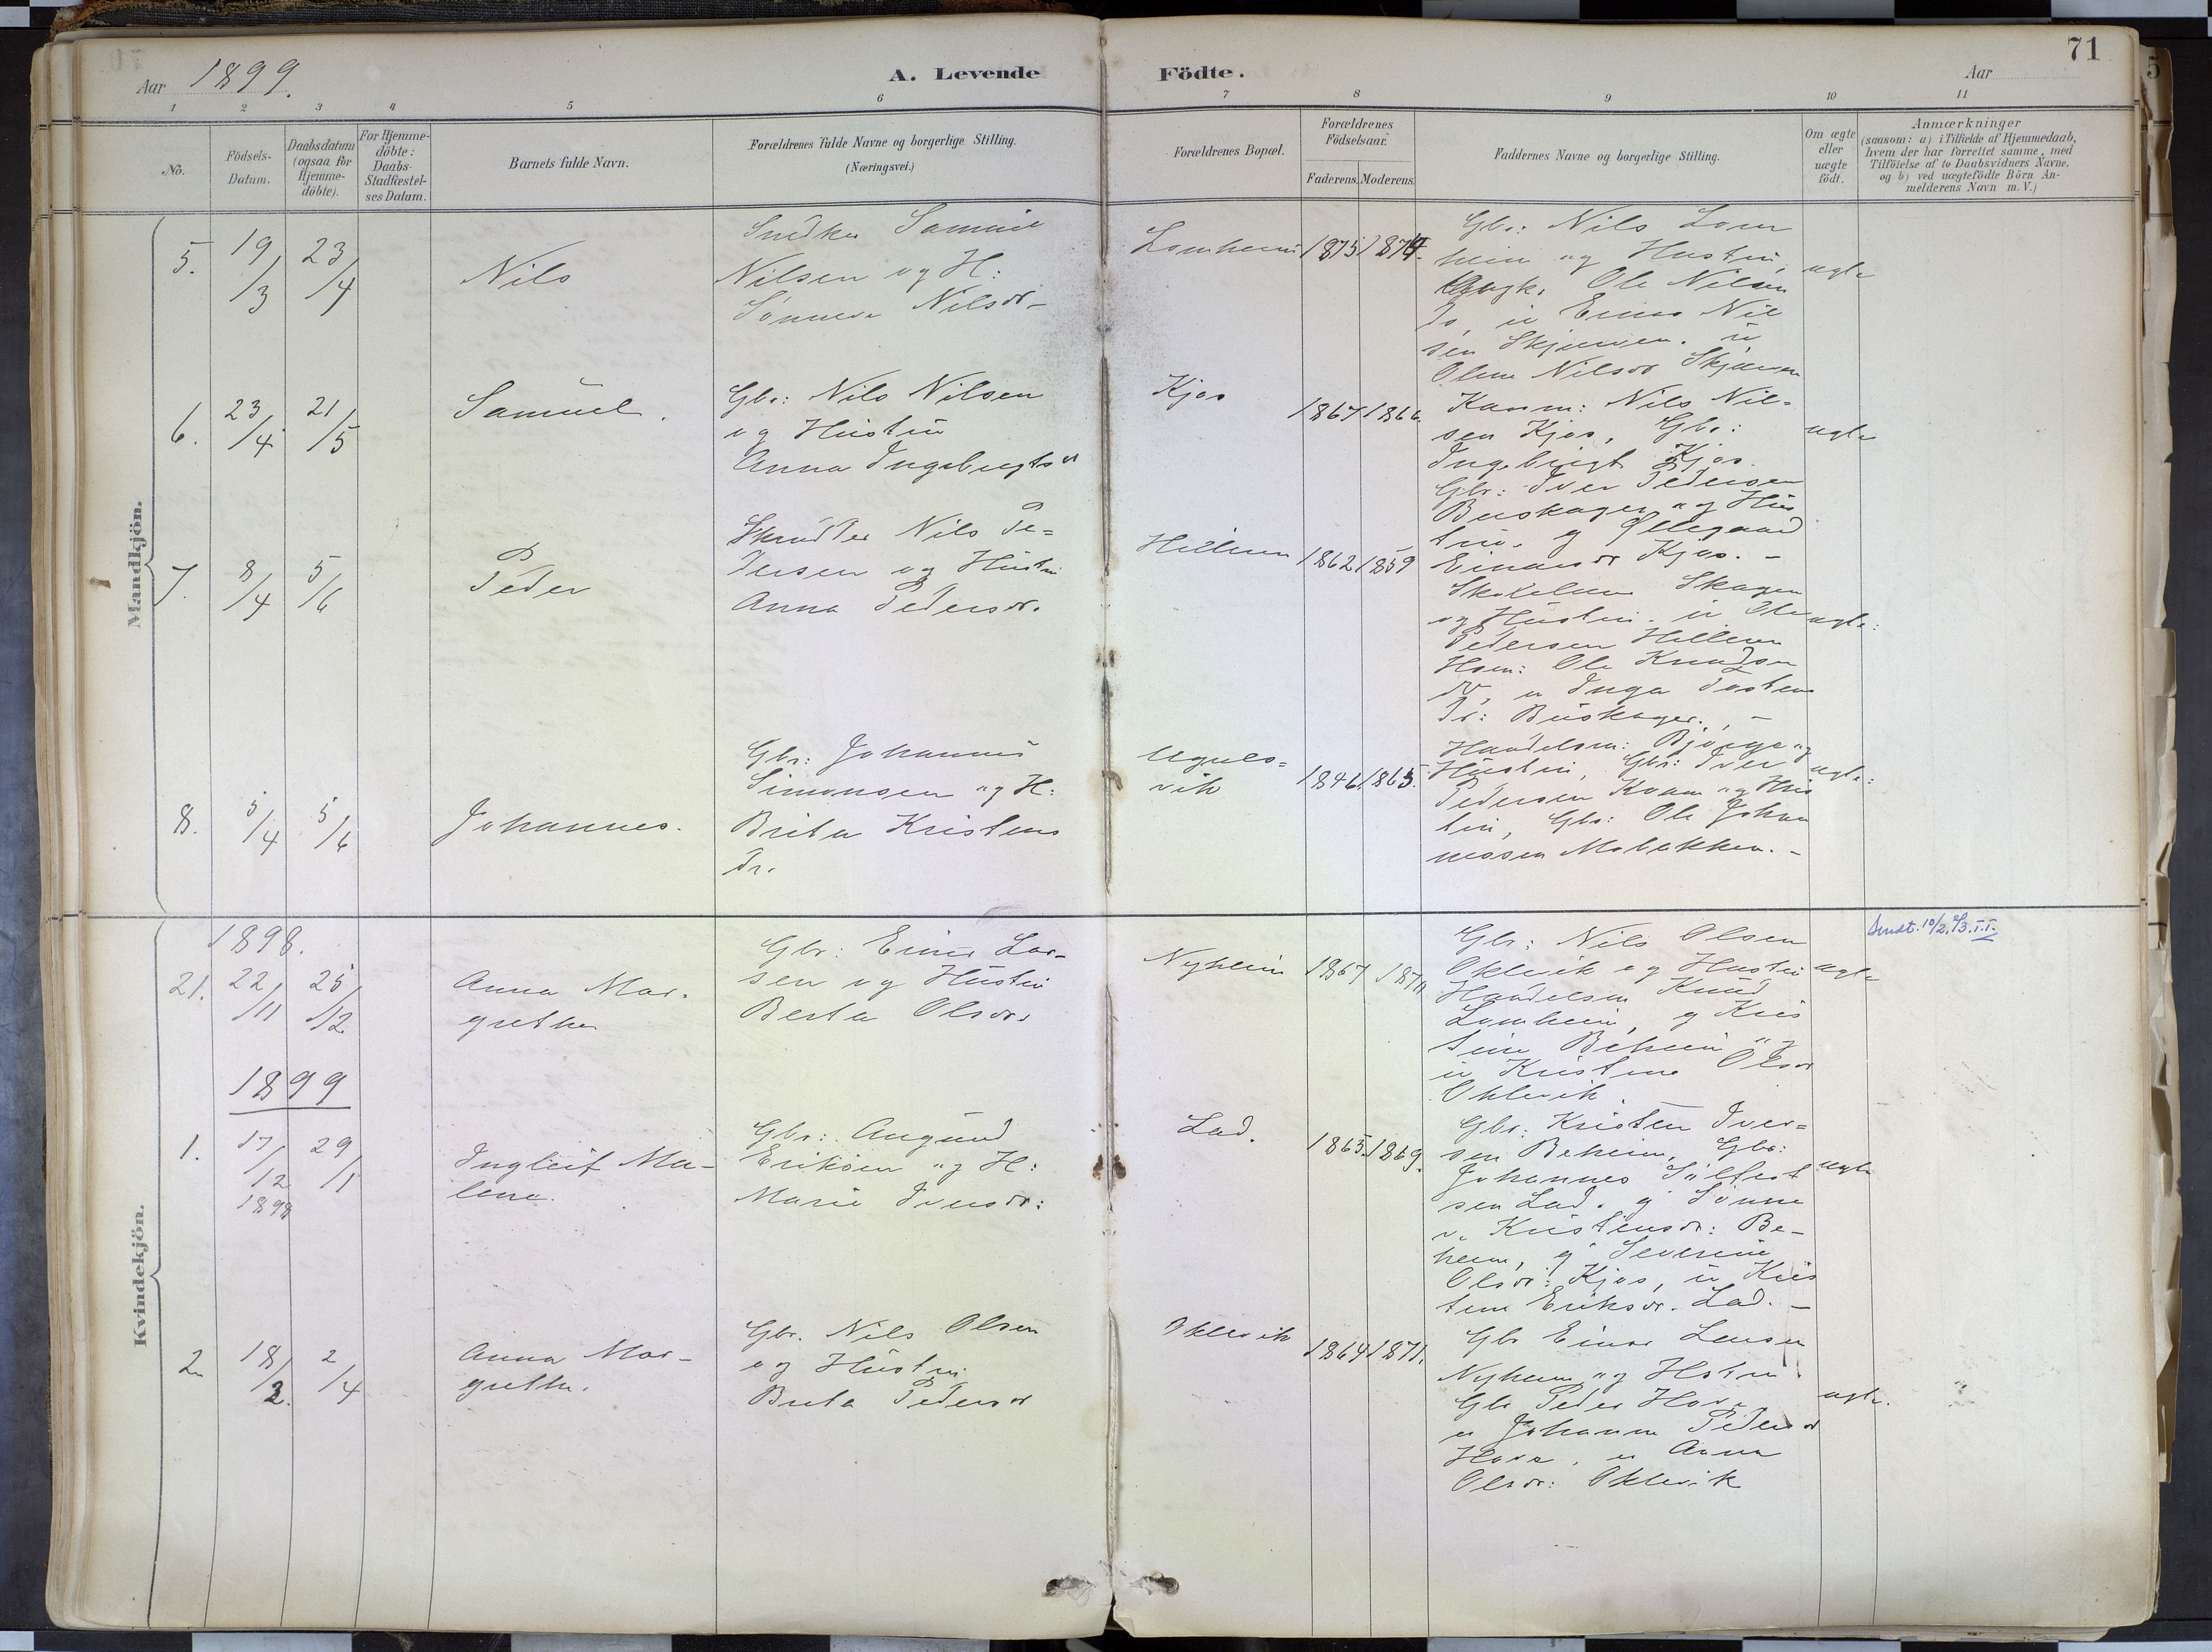 71
Aar 1899.
A. Levende Födte.
Aar
1 2 3 4 5 6 7 8 9 10 11
No.
Födsels-Datum.
Daabsdatum (ogsaa for Hjemme-döbte).
For Hjemme-döbte: Daabs-Stadfæstel-ses Datum.
Barnets fulde Navn.
Forældrenes fulde Navne og borgerlige Stilling.
(Næringsvei.)
Forældrenes Bopæl.
Forældrenes Födselsaar.
Faderens. Moderens.
Faddernes Navne og borgerlige Stilling.
Om ægte eller uægte födt.
Anmærkninger
(saasom: a) i Tilfælde af Hjemmedaab,
hvem der har forrettet samme, med
Tilföielse af to Daabsvidners Navne.
og b) ved uægtefödte Börn An-
melderens Navn m. V.)
Mandkjön.
5. 19/3 23/4
Nils
Snedker
Nilsen og H:
Nilsdr
Lomheim 1875
Gbr: Nils Lom
heim og Hustru,
Ole Nilsen
Do, u Einar Nil
sen Skjerven. u
Oline Nilsdr Skjerven
ægte
6. 23/4 21/5
Samuel.
Gbr: Nils Nilsen
og Hustru
Anna Ingebrigtsdr
Kjos 1867 1866.
Kaarm: Nils Nil-
sen Kjos, Gbr:
Ingebrigt Kjos.
Gbr: Iver Pedersen
Buskager og Hus
tru, g Ollegaard
Einarsdr Kjos. -
ægte
7. 8/4 5/6
Peder
Skrædder Nils Pe=
dersen og Hustru
Anna Pedersdr.
Hillern 1862 1859
Skagen
og Hustru. u Ole
Pedersen Hillern
Hsm: Ole Knudsen
Do, u Inga Jostens
dr: Buskager., -
ægte:
8. 5/4 5/6
Johannes.
Gbr: Johannes
Simonsen og H:
Brita Kristens
dr.
vik 1846 1865.
Handelsm: Bjørge og
Hustru, Gbr: Iver
Pedersen Kvam og Hus
tru, Gbr: Ole Johan
nessen Mobakken. -
ægte:
Kvindekjön.
1898.
21. 22/11 25/12
Anna Mar-
grethe
Gbr: Einar Lar-
sen og Hustru
Berta Olsdr.
Nyheim 1867
Gbr: Nils Olsen
Oklevik og Hustru
Handelsm Knud
Lomheim, g Kris
tine Beheim og
u Kristine Olsdr
Oklevik.
ægte
1899
1. 17/12 1898 29/1
Ingleif Ma-
lena.
Gbr: Augund
Eriksen og H:
Marie Iversdr:
Lad. 1865. 1869.
Gbr: Kristen Iver=
sen Beheim, Gbr:
Johannes
sen Lad. g Sønne
va Kristensdr: Be-
heim, g Severine
Olsdr: Kjos, u Kris
tine Eriksdr. Lad. -
ægte
2. 18/2. 2/4
Anna Mar-
grethe.
Gbr. Nils Olsen
og Hustru
Brita Pedersdr
Oklevik 1864 1871.
Gbr Einar Larsen
Nyheim og Hstru.
Gbr Peder Hove
u Johanna Pedersdr
Hove, u Anna
Olsdr: Oklevik
ægte.